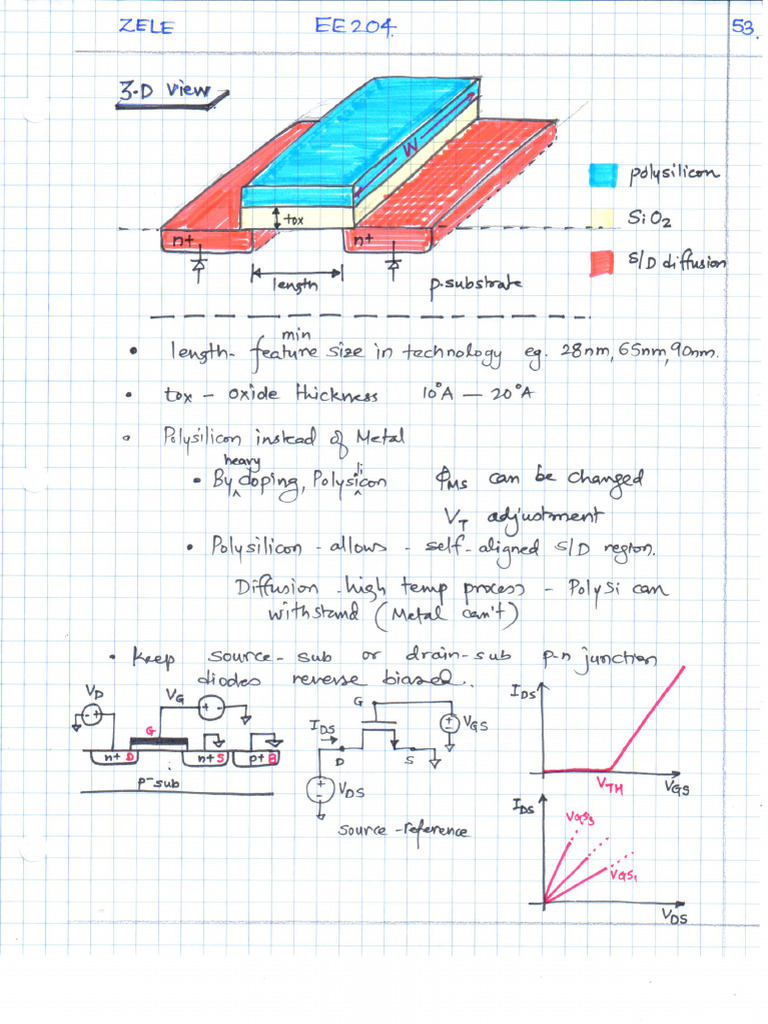 ZELE EE204 53.
3-D view
W
tox
n+ n+
length p-substrate
polysilicon
SiO2
S/D diffusion
min
• length- feature size in technology eg. 28nm, 65nm, 90nm.
• tox - oxide thickness 10°A — 20°A
• Polysilicon instead of Metal
heavy li
• By ^ doping, Polysi^con ΦMS can be changed
VT adjustment
• Polysilicon - allows - self-aligned S/D region.
Diffusion - high temp process - PolySi can
withstand (Metal can't)
• Keep source-sub or drain-sub p-n junction
diodes reverse biased.
VD VG
G
n+ D n+ S p+ B
p-sub
G
IDS VGS
D S
VDS
source-reference
IDS
VTH VGS
IDS
VGS3
VGS1
VDS